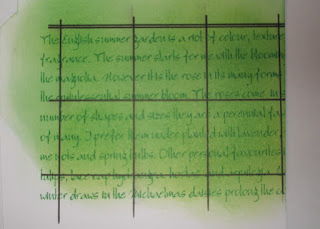 The English summer garden is a riot of colour, texture
fragrance. The summer starts for me with the bloomin
the magnolia. However it is the rose in its many form
the quintessential summer bloom. The roses come in
number of shapes and sizes they are a perennial fav
of many. I prefer them under planted with lavender
and spring bulbs. Other personal favourites
tulips, lace cap hydrangea, hostas and
winter draws in the Michaelmas daisies prolong the